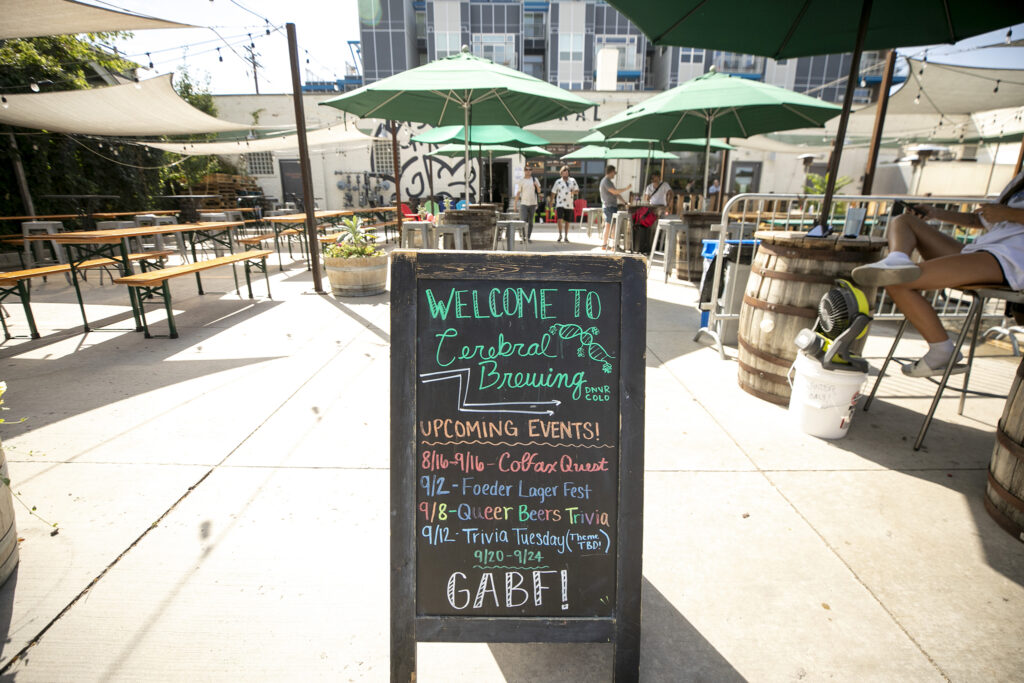 WELCOME TO
Cerebral
Brewing
DNVR
COLO
UPCOMING EVENTS!
8/16-9/16 - Colfax Quest
9/2 - Foeder Lager Fest
9/8 - Queer Beers Trivia
9/12 - Trivia Tuesday (Theme TBD!)
9/20 - 9/24
GABF!